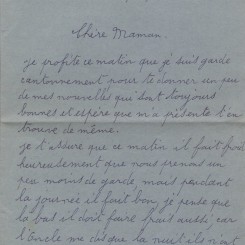 Chère Maman.
je profite ce matin que je suis garde
cantonnement pour te donner un peu
de mes nouvelles qui sont toujours
bonnes et espère que m a présente t'en
trouve de même.
je t'assure que ce matin il fait froid
heureusement que nous prenons un
peu moins de garde, mais pendant
la journée il fait bon, je pense que
la bas il doit faire frais aussi car
l'oncle me dis que la nuit ils n'ont